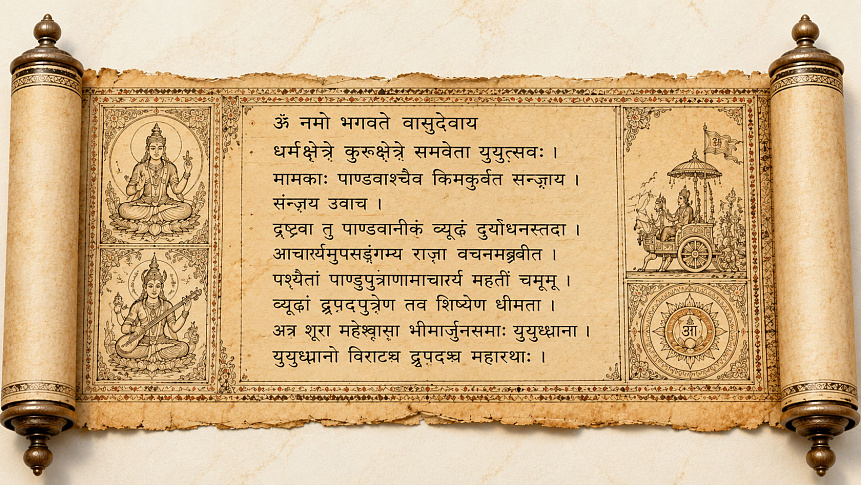 ॐ नमो भगवते वासुदेवाय
धर्मक्षेत्रे कुरूक्षेत्रे समवेता युयुत्सवः ।
मामकाः पाण्डवाश्चैव किमकुर्वत सन्ज़ाय ।
संन्ज़य उवाच ।
द्रष्ट्रवा तु पाण्डवानीकं व्यूढं दुर्योधनस्तदा ।
आचार्यमुपसङ्गम्य राज़ा वचनमब्रबीत ।
पश्यैतां पाण्डुपुत्राणामाचार्य महतीं चमूमू ।
व्यूढां द्रुपदपुत्रेण तव शिष्येण धीमता ।
अत्र शूरा महेश्वासा भीमार्जुनसमाः युयुध्धाना ।
युयुध्धानो विराटश्च द्रुपदश्च महारथाः ।
ॐ